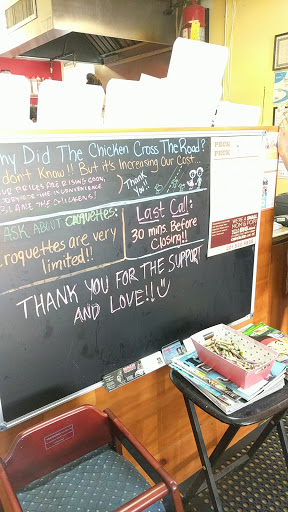 hy Did The Chicken Cross The Road?
don't Know!! But it's Increasing Our Cost...
UR PRICES ARE RISING SOON,
THE INCONVENIENCE
BLAME THE CHICKENS!
Thank You!!
ASK ABOUT CROQUETTES:
Croquettes are very
limited!!
Last Call:
30 mins. Before
Closing!!
THANK YOU FOR THE SUPPORT
AND LOVE!!
PECK
PECK